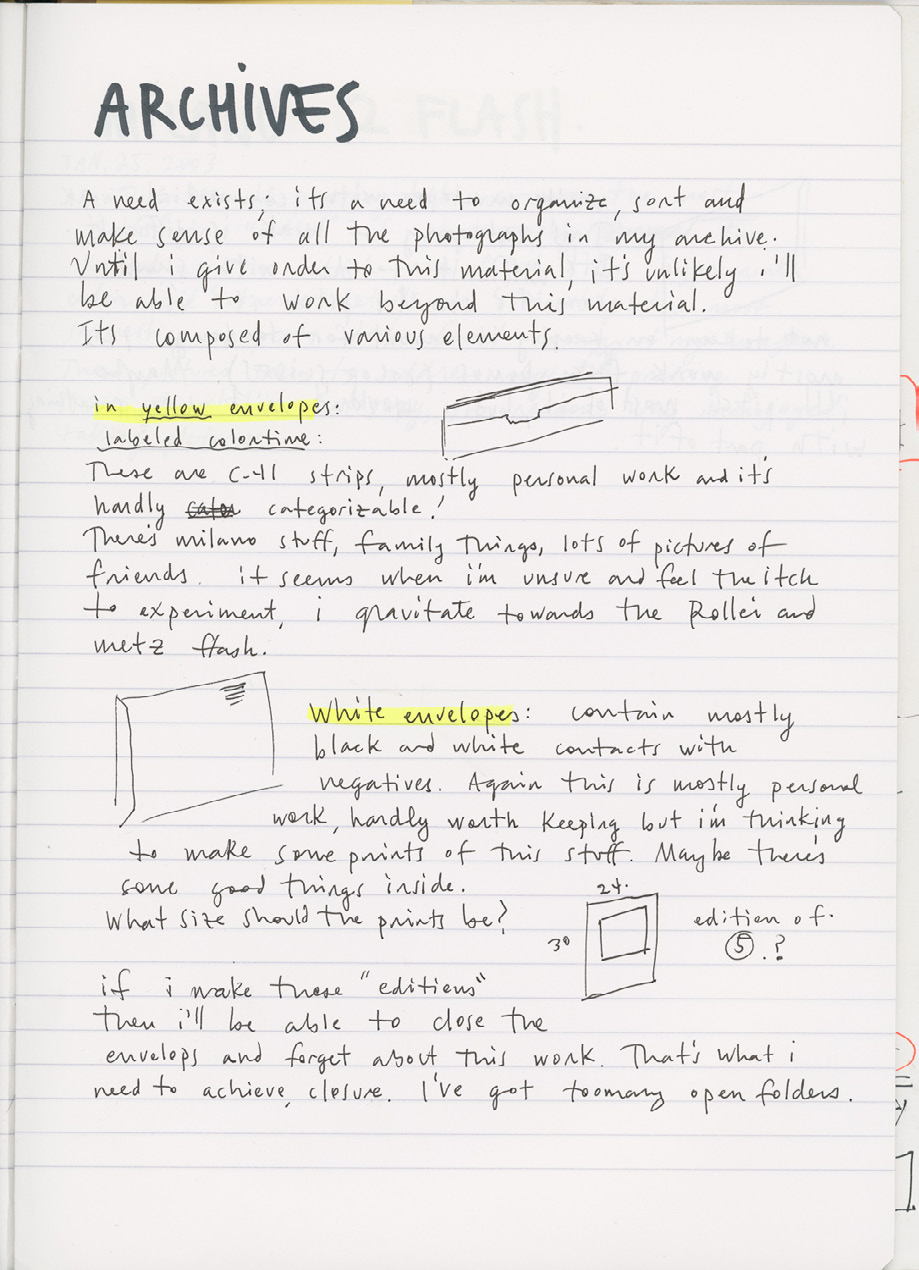 ARCHIVES
A need exists; its a need to organize, sort and
make sense of all the photographs in my archive.
Until i give order to this material, it's unlikely i'll
be able to work beyond this material.
Its composed of various elements.
in yellow envelopes:
labeled colortime:
These are C-41 strips, mostly personal work and it's
hardly categorizable!
There's milano stuff, family things, lots of pictures of
friends. it seems when i'm unsure and feel the itch
to experiment, i gravitate towards the Rollei and
metz flash.
White envelopes: contain mostly
black and white contacts with
negatives. Again this is mostly personal
work, hardly worth keeping but i'm thinking
to make some prints of this stuff. Maybe there's
some good things inside.
What size should the prints be?
24.
30
edition of.
5.?
if i make these "editions"
then i'll be able to close the
envelops and forget about this work. That's what i
need to achieve, closure. I've got too many open folders.